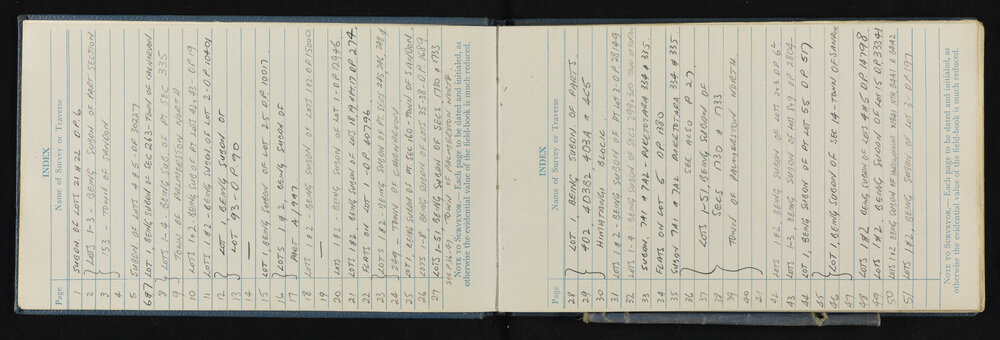 INDEX
Page Name of Survey or Traverse
1 SUBDN. OF LOTS 21 & 22 D.P. 6
2 LOTS 1-3 - BEING SUBDN OF PART SECTION
3 153 - TOWN OF SANDON
4
5 SUBDN OF LOTS 4 & 5 - DP 30227
6&7 LOT 1, BEING SUBDN OF SEC 263 - TOWN OF CARNARVAN
8 LOTS 1-4 - BEING SUB. OF PT SEC 335
9 TOWN OF PALMERSTON NORTH
10 LOTS 1&2 - BEING SUB OF PT LOTS
11 LOTS 1&2 - BEING SUBDN OF LOT 2 - D.P. 10401
12 LOT 1, BEING SUBDN. OF
13 LOT 93 - D.P. 90
14
15 LOT 1, BEING SUBDN OF LOT 25 D.P. 10017
16 LOTS 1 & 2, BEING SUBDN OF
17 PART A/1997
18 LOTS 1&2 - BEING SUBDN OF LOTS 1&2 - D.P. 15000
19
20 LOTS 1&2 - BEING SUBDN OF LOT 1 - D.P. 13946
21 LOT 1&2 BEING SUBDN OF LOTS 18, & PT. 17 D.P. 274.
22 FLATS ON LOT 1 - D.P. 40796
23 LOTS 1&2 - BEING SUBDN OF PT. SECS 245, 248 &
24 249 - TOWN OF CARNARVON
25 LOT 1, BEING SUBDN OF PT SEC 160 - TOWN OF SANDON
26 LOTS 1-8 BEING SUBDN OF LOTS 35-38 - D.P. 1689
27 LOTS 1-51, BEING SUBDN OF SECS. 1730 & 1733
SEE P. 36-41 TOWN OF PALMERSTON NORTH
NOTE TO SURVEYOR.—Each page to be dated and initialed, as
otherwise the evidential value of the field-book is much reduced.
INDEX
Page Name of Survey or Traverse
28 LOT 1, BEING SUBDN OF PARTS
29 402, 403B2, 403A & 455
30 HIMATANGI BLOCK
31 LOTS 1&2 - BEING SUBDN OF PT LOT 2 - D.P. 28149
32 LOTS 1&2 - BEING SUBDN OF SECS 29 & 30
33 SUBDN. 7A1 & 7A2 AWETOTARA 334 & 335.
34 FLATS ON LOT 5 DP. 1380
35 SUBDN 7A1 & 7A2 AWETOTARA 334 & 335
36 SEE ALSO P 27
37 LOTS 1-51, BEING SUBDN OF
38 SECS 1730 & 1733
39 TOWN OF PALMERSTON NORTH
40
41
42 LOTS 1&2, BEING SUBDN OF LOTS 2&3 D.P. 64
43 LOTS 1-3, BEING SUBDN OF
44 LOT 1, BEING SUBDN OF PT LOT 55 D.P. 517
45
46 LOT 1, BEING SUBDN OF SEC 14 - TOWN OF SANDON
47
48 LOTS 1&2 BEING SUBDN OF LOTS 4&5 D.P. 14798
49 LOTS 1&2 BEING SUBDN OF LOT 15 D.P. 33341
50 LOTS 1&2, BEING SUBDN OF
51 LOTS 1&2, BEING SUBDN OF LOT 3 - D.P. 197
NOTE TO SURVEYOR.—Each page to be dated and initialed, as
otherwise the evidential value of the field-book is much reduced.